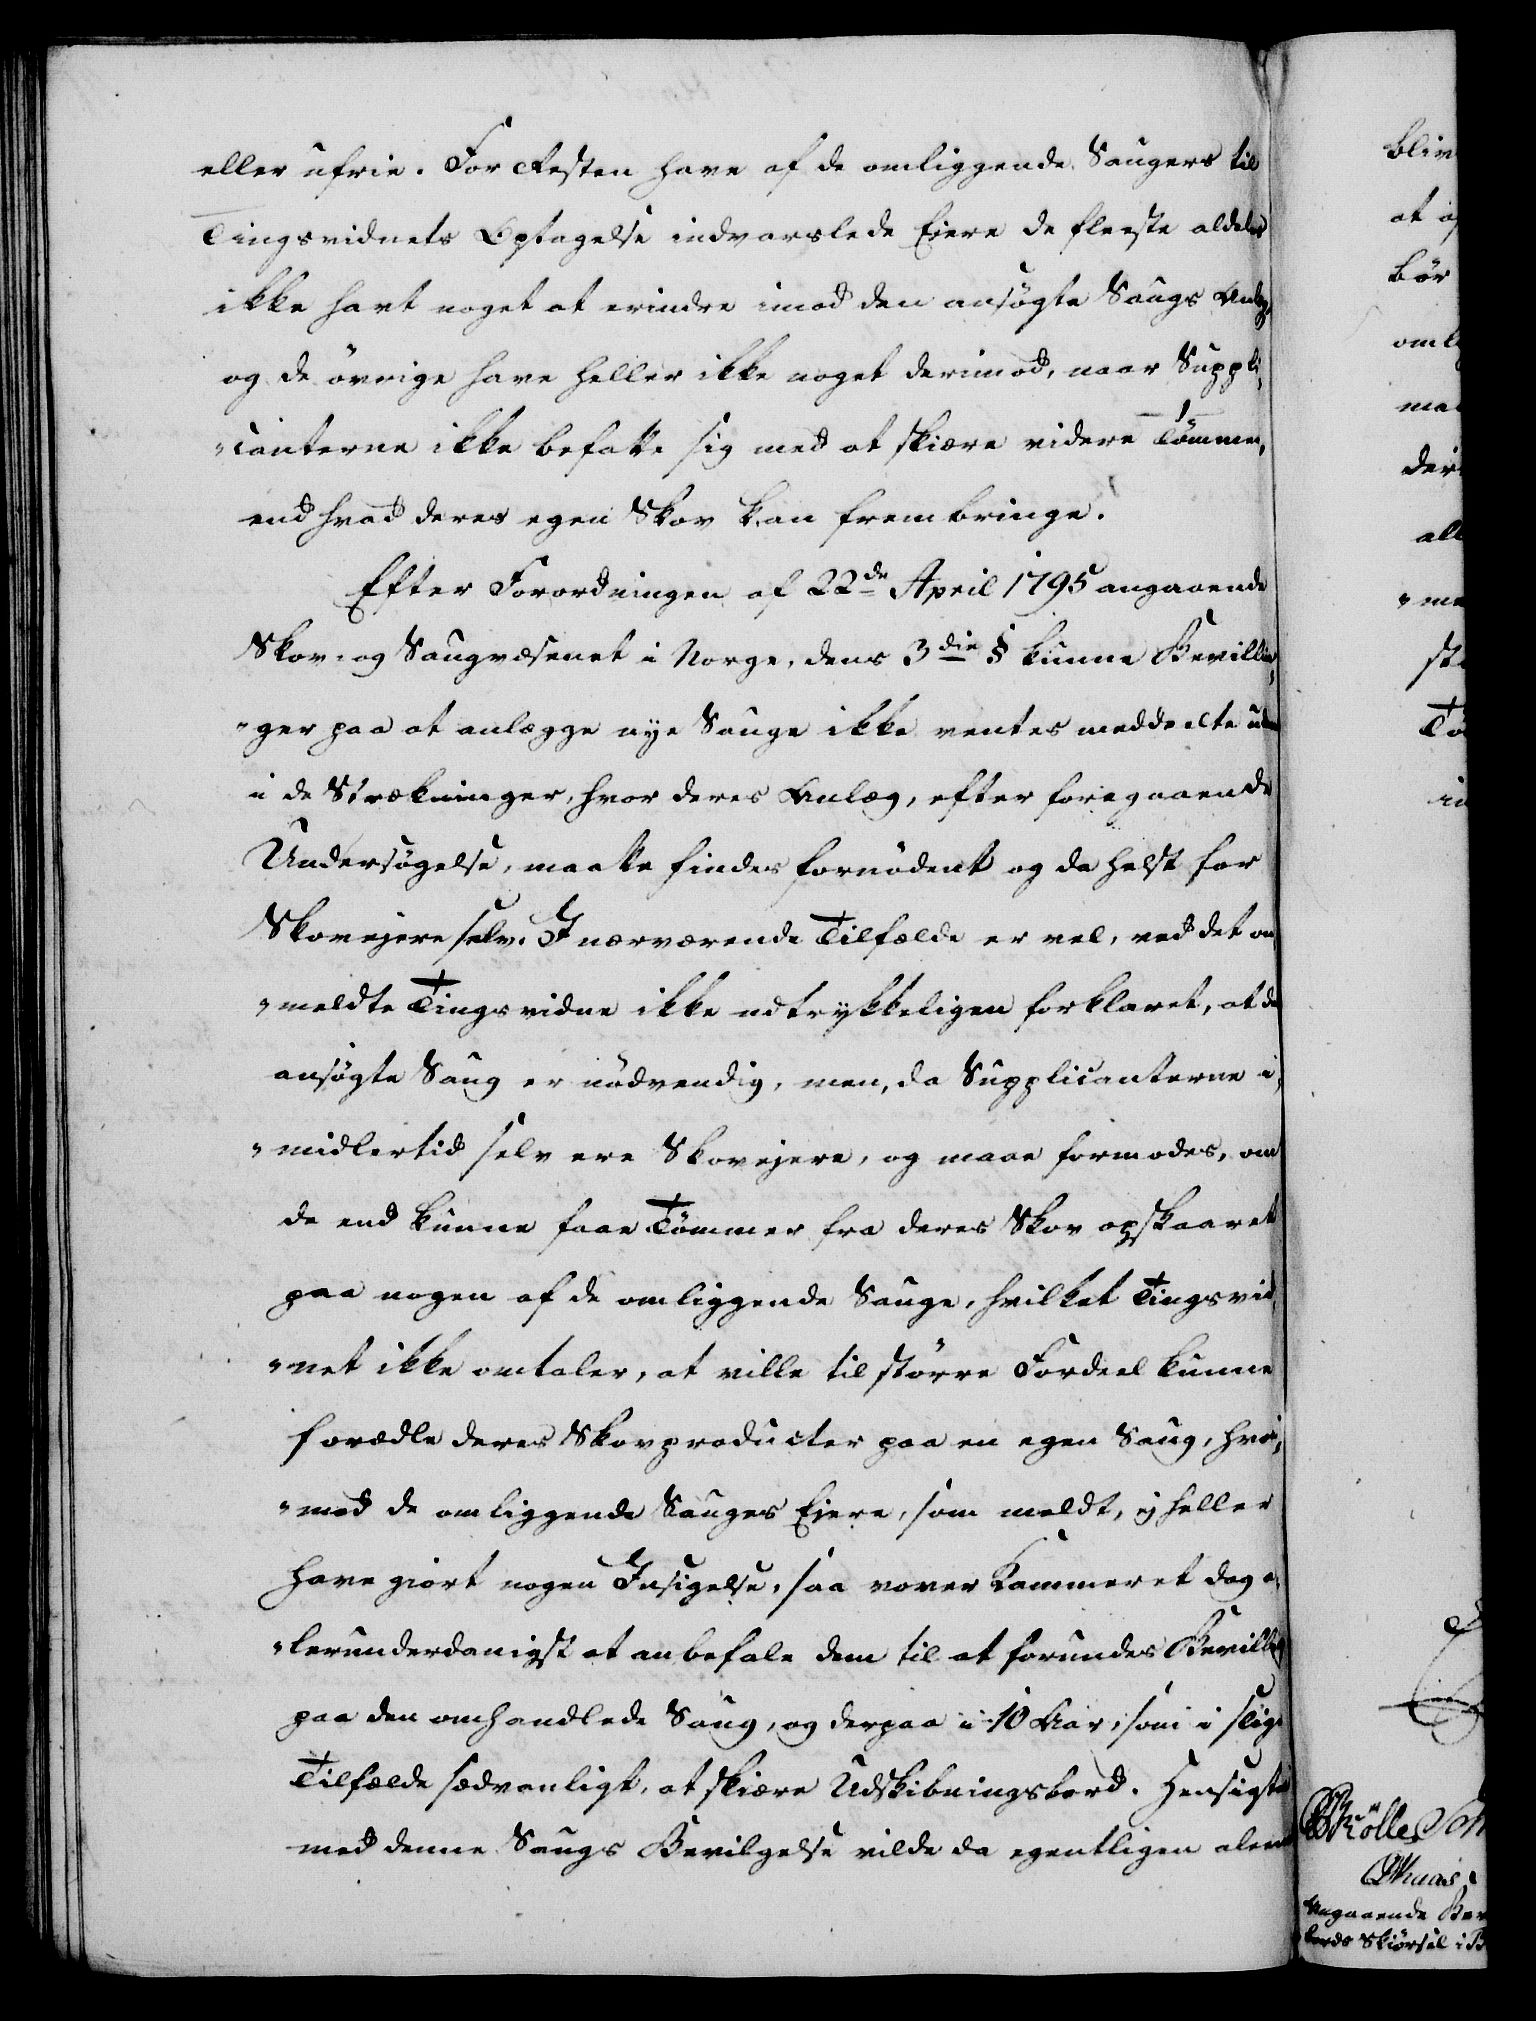 eller ufrie. For Resten have af de omliggende Saugers til
Tingsvidnets Optagelse indvarslede Eiere de fleeste aldeles
ikke havt noget at erindre imod den ansögte Saugs Anlæg,
og de övrige have heller ikke noget derimod, naar Suppli,
"canterne ikke befatte sig med at skiære videre Tömmer,
end hvad deres egen Skov kan frembringe.
Efter Forordningen af 22de April 1795 angaaende
Skov- og Saugvæsenet i Norge, dens 3die § kunne Bevillin,
"ger paa at anlægge nye Sauge ikke ventes meddeelte uden
i de Strækninger, hvor deres Anlæg, efter foregaaende
Undersögelse, maatte findes fornödent og da helst for
Skovejere selv. I nærværende Tilfælde er vel, ved det an
"meldte Tingsvidne ikke udtrykkeligen forklaret, at den
ansögte Saug er nödvendig, men, da Supplicanterne i,
"midlertid selv ere Skovejere, og maae formodes, om
de end kunne faae Tömmer fra deres Skov opskaaret
paa nogen af de omliggende Sauge, hvilket Tingsvid,
"net ikke omtaler, at ville til större Fordeel kunne
forædle deres Skovproducter paa en egen Saug, hvor,
"mod de omliggende Sauges Eiere, som meldt, ej heller
have giort nogen Insigelse, saa vover Kammeret dog a,
"lerunderdanigst at anbefale dem til at forundes Bevilling
paa den omhandlede Saug, og derpaa i 10 Aar, som i slige
Tilfælde sædvanligt, at skiære Udskibningsbord. Hensigten
med denne Saugs Bevilgelse vilde da egentligen alene
bör
Angaaende